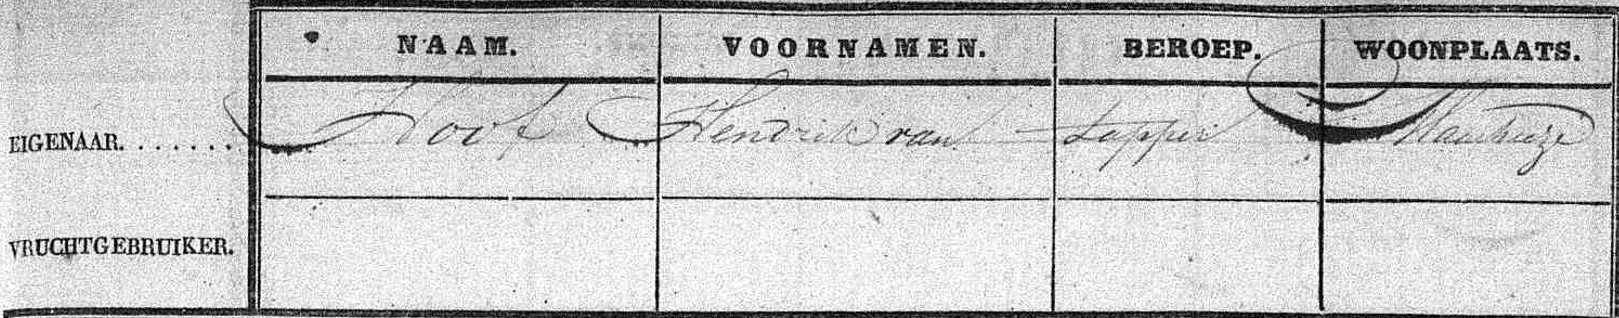 NAAM. VOORNAMEN. BEROEP. WOONPLAATS.
EIGENAAR. . . . . . . Hoof Hendrik van tapper
VRUCHTGEBRUIKER.